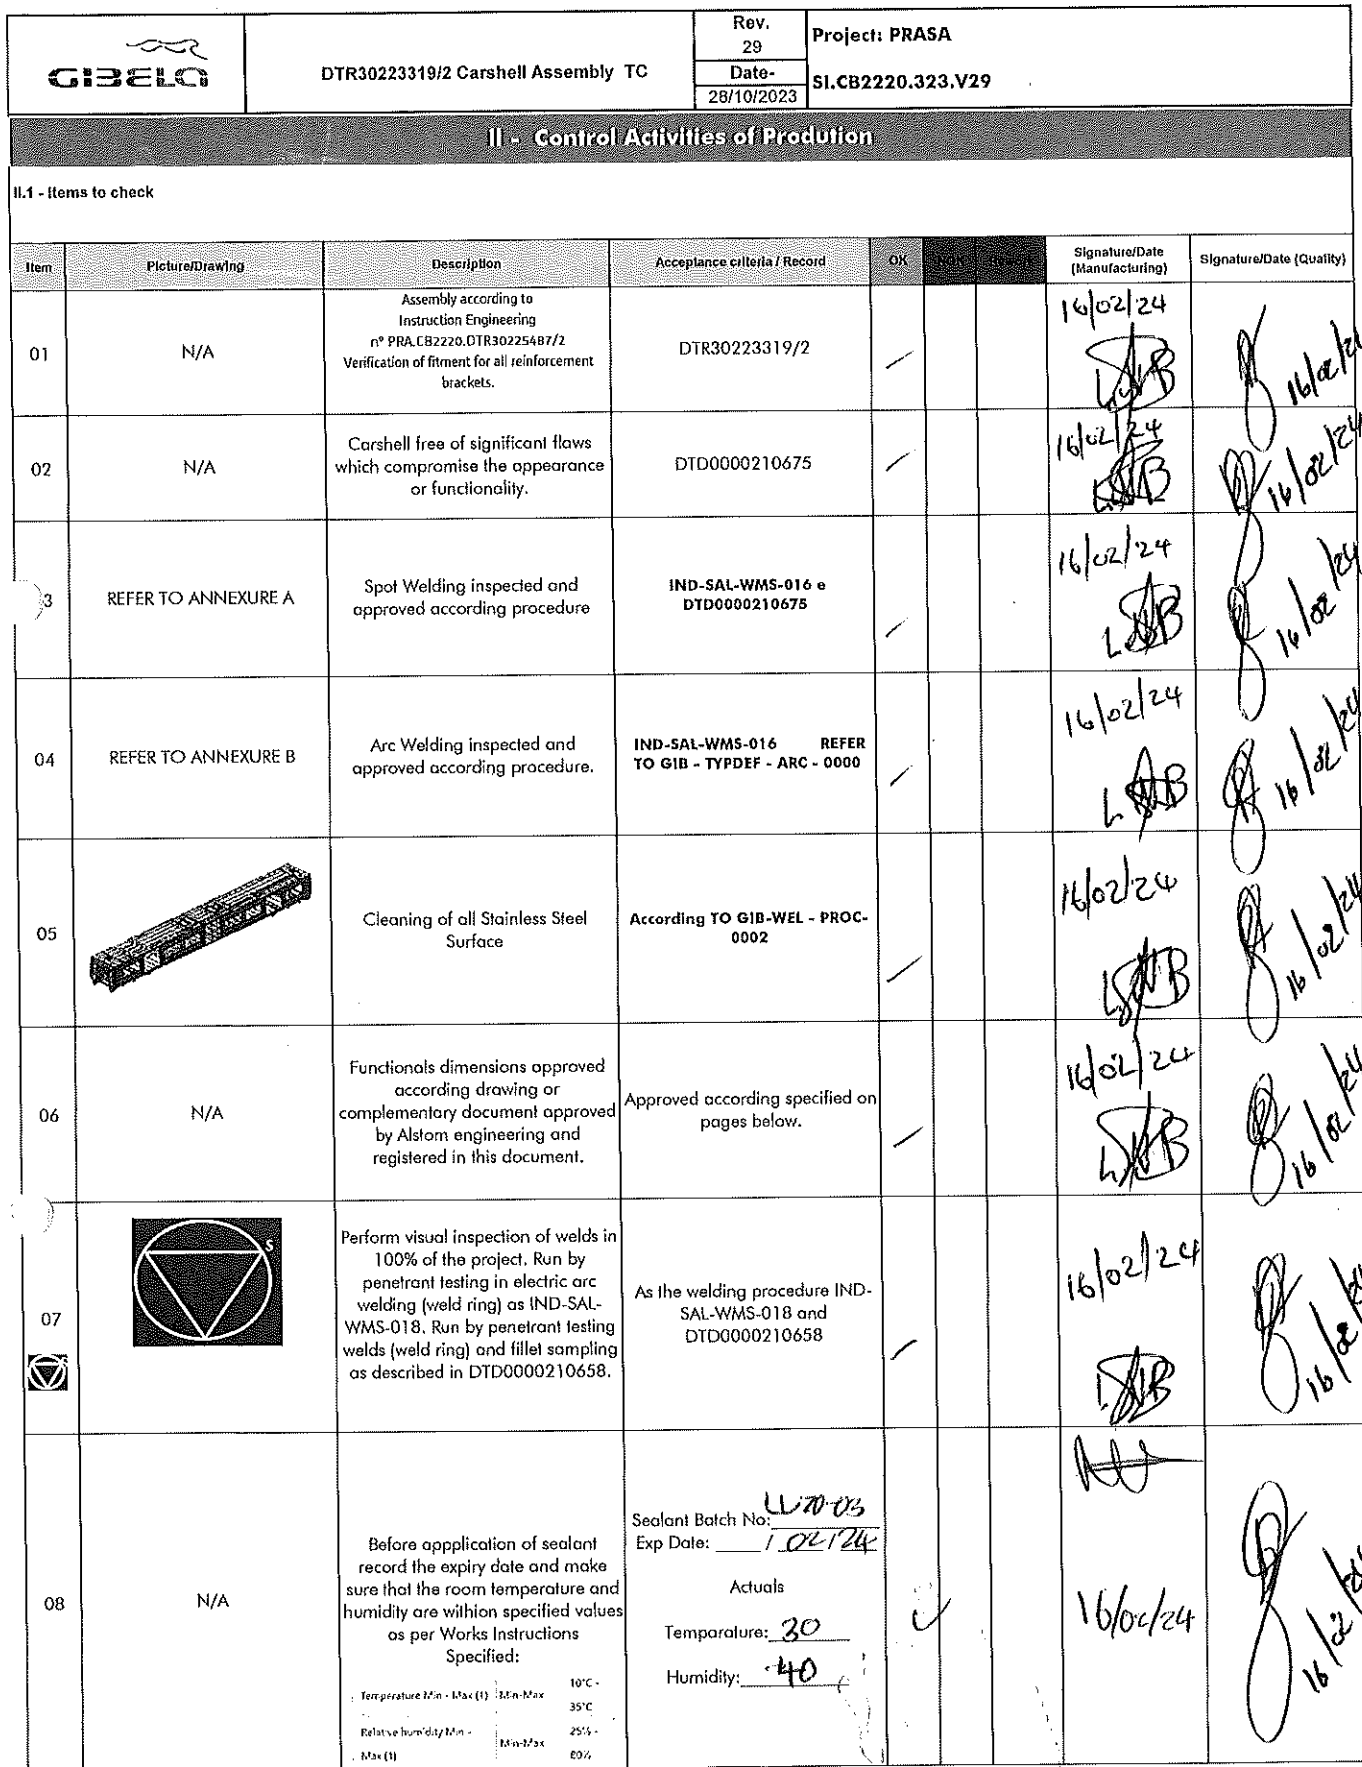 GIBELA
DTR30223319/2 Carshell Assembly TC
Rev.
29
Date-
28/10/2023
Project: PRASA
SI.CB2220.323.V29
II - Control Activities of Prodution
II.1 - Items to check
Item
Picture/Drawing
Description
Acceptance criteria / Record
OK
Signature/Date
(Manufacturing)
Signature/Date (Quality)
01
N/A
Assembly according to
Instruction Engineering
nº PRA.CB2220.DTR30225487/2
Verification of fitment for all reinforcement
brackets.
DTR30223319/2
16/02/24
16/02/24
02
N/A
Carshell free of significant flaws
which compromise the appearance
or functionality.
DTD0000210675
16/02/24
16/02/24
3
REFER TO ANNEXURE A
Spot Welding inspected and
approved according procedure
IND-SAL-WMS-016 e
DTD0000210675
16/02/24
16/02/24
04
REFER TO ANNEXURE B
Arc Welding inspected and
approved according procedure.
IND-SAL-WMS-016 REFER
TO GIB - TYPDEF - ARC - 0000
16/02/24
16/02/24
05
Cleaning of all Stainless Steel
Surface
According TO GIB-WEL - PROC-
0002
16/02/24
16/02/24
06
N/A
Functionals dimensions approved
according drawing or
complementary document approved
by Alstom engineering and
registered in this document.
Approved according specified on
pages below.
16/02/24
16/02/24
07
S
Perform visual inspection of welds in
100% of the project. Run by
penetrant testing in electric arc
welding (weld ring) as IND-SAL-
WMS-018. Run by penetrant testing
welds (weld ring) and fillet sampling
as described in DTD0000210658.
As the welding procedure IND-
SAL-WMS-018 and
DTD0000210658
16/02/24
16/02/24
08
N/A
Before appplication of sealant
record the expiry date and make
sure that the room temperature and
humidity are withion specified values
as per Works Instructions
Specified:
Temperature Min - Max (1) Min-Max 10°C -
35°C
Relative humidity Min -
Max (1) Min-Max 25% -
80%
Sealant Batch No:
Exp Date: / 02/24
Actuals
Temparature: 30
Humidity: 40
16/02/24
16/02/24